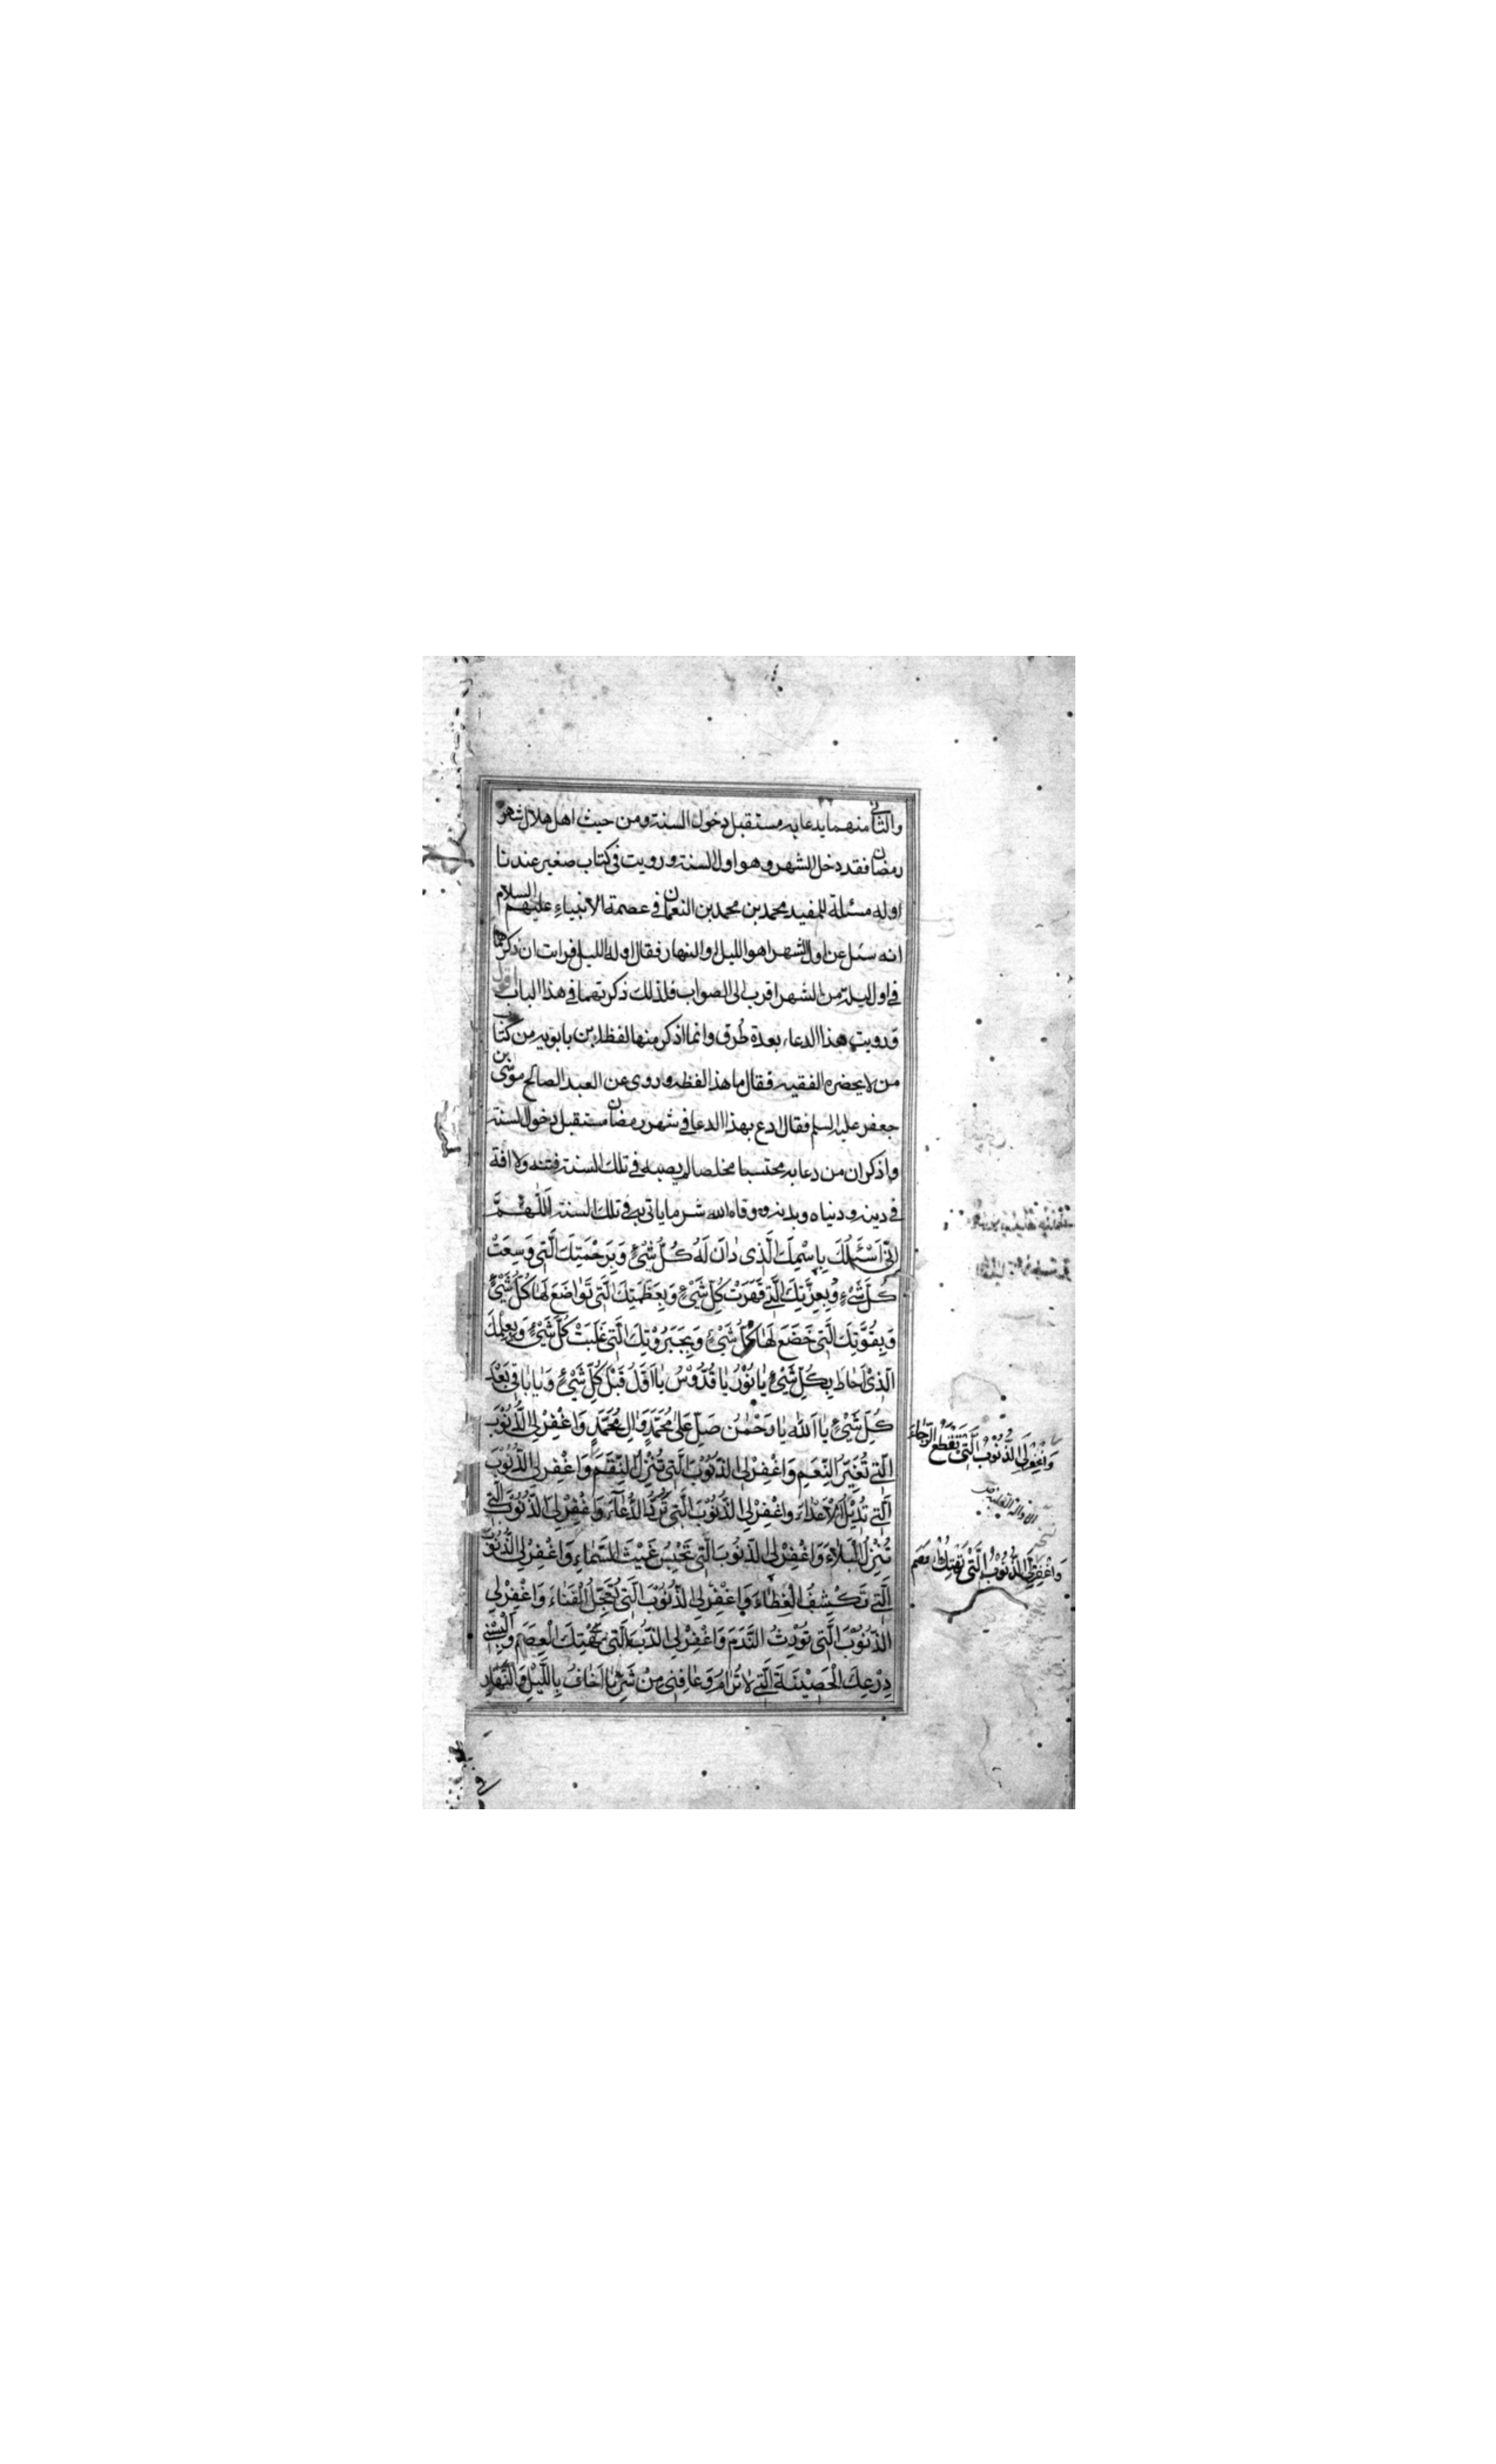 والثانى منهما يدعا به مستقبل دخول السنة ومن حيث اهل هلال شهر
رمضان فقد دخل الشهر وهو اول السنة ورويت فى كتاب صغير عندنا
اوله مسئلة للمفيد محمد بن محمد بن النعمان فى عصمة الانبياء عليهم السلام
انه سئل عن اول الشهر اهو الليل او النهار فقال اوله الليل فرايت ان ذكرهما
فى اول ليلة من الشهر اقرب الى الصواب فلذلك ذكرتهما فى هذا الباب اقول
قد رويت هذا الدعاء بعدة طرق وانما اذكر منها لفظ ابن بابويه من كتاب
من لا يحضره الفقيه فقال ما هذا لفظه وروى عن العبد الصالح موسى بن
جعفر عليه السلم فقال ادع بهذا الدعا فى شهر رمضان مستقبل دخول السنة
واذكر ان من دعا به محتسبا مخلصا لم يصبه فى تلك السنة فتنه ولا افة
فى دينه ودنياه وبدنه ووقاه الله شر ما ياتى به فى تلك السنة اَللّٰهُمَّ
اِنّى اَسْئَلُكَ بِاِسْمِكَ الَّذِى دٰانَ لَهُ كُلُّ شَىْءٍ وَبِرَحْمَتِكَ الَّتى وَسِعَتْ
كُلَّ شَىْءٍ وَبِعِزَّتِكَ الَّتى قَهَرَتْ كُلَّ شَىْءٍ وَبِعَظَمَتِكَ الَّتى تَوٰاضَعَ لَهٰا كُلُّ شَىْءٍ
وَبِقُوَّتِكَ الَّتى خَضَعَ لَهٰا كُلُّ شَىْءٍ وَبِجَبَرُوْتِكَ الَّتى غَلَبَتْ كُلَّ شَىْءٍ وَبِعِلْمِكَ
الَّذىْ اَحٰاطَ بِكُلِّ شَىْءٍ يٰا نُوْرُ يٰا قُدُّوْسُ يٰا اَوَّلُ قَبْلَ كُلِّ شَىْءٍ وَيٰا بٰاقى بَعْدَ
كُلِّ شَىْءٍ يٰا اَللّٰهُ يٰا رَحْمٰنُ صَلِّ عَلىٰ مُحَمَّدٍ وَاٰلِ مُحَمَّدٍ وَاغْفِرْ لِى الذُّنُوْبَ
الَّتى تُغَيِّرُ النِّعَمَ وَاغْفِرْ لِىَ الذُّنُوْبَ الَّتى تُنْزِلُ النِّقَمَ وَاغْفِرْ لِى الذُّنُوْبَ
الَّتى تُدْيِلُ الْاَعْدٰاءَ وَاغْفِرْ لِىَ الذُّنُوْبَ الَّتى تَرُدُّ الدُّعٰاءَ وَاغْفِرْ لِىَ الذُّنُوْبَ الَّتى
تُنْزِلُ الْبَلٰاءَ وَاغْفِرْ لِىَ الذُّنُوبَ الَّتى تَحْبِسُ غَيْثَ السَّمٰاءِ وَاغْفِرْ لِى الذُّنُوْبَ
الَّتى تَكْشِفُ الْغِطٰاءَ وَاغْفِرْ لِى الذُّنُوْبَ الَّتى تُعَجِّلُ الْفَنٰاءَ وَاغْفِرْ لِى
الذُّنُوْبَ الَّتى تُوْرِثُ النَّدَمَ وَاغْفِرْ لِى الذُّنُوْبَ الَّتى تَهْتِكُ الْعِصَمَ وَاَلْبِسْنى
دِرْعَكَ الْحَصِيْنَةَ الَّتى لٰا تُرٰامُ وَعٰافِنى مِنْ شَرِّ مٰا اَخٰافُ بِاللَّيْلِ وَالنَّهٰارِ
وَاغْفِرْ لِىَ الذُّنُوْبَ الَّتى تَقْطَعُ الرَّجٰاءَ
وَاغْفِرْ لِىَ الذُّنُوْبَ الَّتى تَهْتِكُ